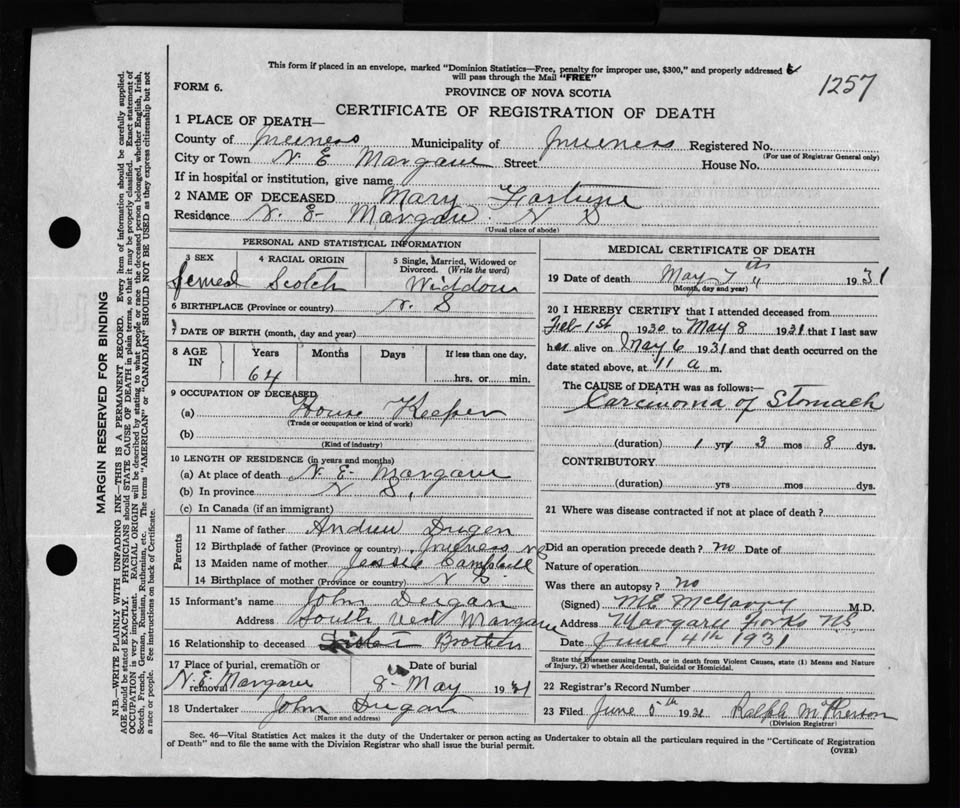 This form if placed in an envelope, marked "Dominion Statistics—Free, penalty for improper use, $300," and properly addressed
will pass through the Mail "FREE"
1257
FORM 6.
PROVINCE OF NOVA SCOTIA
CERTIFICATE OF REGISTRATION OF DEATH
1 PLACE OF DEATH—
County of Inverness Municipality of Inverness Registered No.
(For use of Registrar General only)
City or Town N. E Margaree Street House No.
If in hospital or institution, give name
2 NAME OF DECEASED Mary
Residence N. E- Margaree N S
(Usual place of abode)
PERSONAL AND STATISTICAL INFORMATION
3 SEX 4 RACIAL ORIGIN 5 Single, Married, Widowed or Divorced. (Write the word)
Scotch Widdow
6 BIRTHPLACE (Province or country) N. S
7 DATE OF BIRTH (month, day and year)
8 AGE IN Years Months Days If less than one day,
64 hrs. or min.
9 OCCUPATION OF DECEASED
(a) House Keeper
(Trade or occupation or kind of work)
(b)
(Kind of industry)
10 LENGTH OF RESIDENCE (in years and months)
(a) At place of death N. E- Margaree
(b) In province N S.
(c) In Canada (if an immigrant)
Parents
11 Name of father Andrew
12 Birthplace of father (Province or country) Inverness NS
13 Maiden name of mother Jessie Campbell
14 Birthplace of mother (Province or country) N S.
15 Informant's name John
Address South West Margaree
16 Relationship to deceased Sister Brother
17 Place of burial, cremation or removal Date of burial
N. E. Margaree 8 May 1931
18 Undertaker John
(Name and address)
MEDICAL CERTIFICATE OF DEATH
19 Date of death May 7th 1931
(Month, day and year)
20 I HEREBY CERTIFY that I attended deceased from
Feb 1st 1930 to May 8 1931 that I last saw
her alive on May 6 1931 and that death occurred on the
date stated above, at 11 a m.
The CAUSE OF DEATH was as follows:—
Carcinoma of Stomach
(duration) 1 yrs 3 mos 8 dys.
CONTRIBUTORY
(duration) yrs. mos. dys.
21 Where was disease contracted if not at place of death?
Did an operation precede death? no Date of
Nature of operation
Was there an autopsy? no
(Signed) M.D.
Address Margaree Forks NS
Date June 4th 1931
State the Disease causing Death, or in death from Violent Causes, state (1) Means and Nature
of Injury, (2) whether Accidental, Suicidal or Homicidal.
22 Registrar's Record Number
23 Filed June 1931 Ralph McPherson
(Division Registrar)
Sec. 46—Vital Statistics Act makes it the duty of the Undertaker or person acting as Undertaker to obtain all the particulars required in the "Certificate of Registration
of Death" and to file the same with the Division Registrar who shall issue the burial permit.
(OVER)
MARGIN RESERVED FOR BINDING
N.B.—WRITE PLAINLY WITH UNFADING INK—THIS IS A PERMANENT RECORD. Every item of information should be carefully supplied.
AGE should be stated EXACTLY. PHYSICIANS should STATE CAUSE OF DEATH in plain terms, so that it may be properly classified. Exact statement of
OCCUPATION is very important. RACIAL ORIGIN will be described by stating to what people or race the deceased person belonged, whether English, Irish,
Scotch, French, German, Russian, Ruthenian, etc. The terms "AMERICAN" or "CANADIAN" SHOULD NOT BE USED as they express citizenship but not
a race or people. See instructions on back of Certificate.